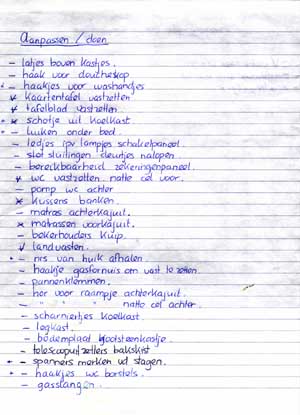 Aanpassen / doen
- latjes boven kastjes.
- haak voor douchekop
- haakjes voor washandjes
v kaartentafel vastzetten
v tafelblad vastzetten.
* schotje uit koelkast
- luiken onder bed.
- ledjes ipv lampjes schakelpaneel.
- slot sluitingen deurtjes nalopen
- bereikbaarheid zekeringenpaneel.
v wc vastzetten natte cel voor.
- pomp wc achter
x kussens banken.
- matras achterkajuit.
x matrassen voorkajuit.
- bekerhouders kuip.
v landvasten.
- nrs van huik afhalen.
- haakje gasfornuis om vast te zetten.
- pannenklemmen.
- hor voor raampje achterkajuit.
- " " " natte cel achter.
- scharniertjes koelkast
- legkast.
- bodemplaat kastje.
- telescoopuitzetters bakskist
- spanners merken vd stagen.
- haakjes wc borstels.
- gasslangen.